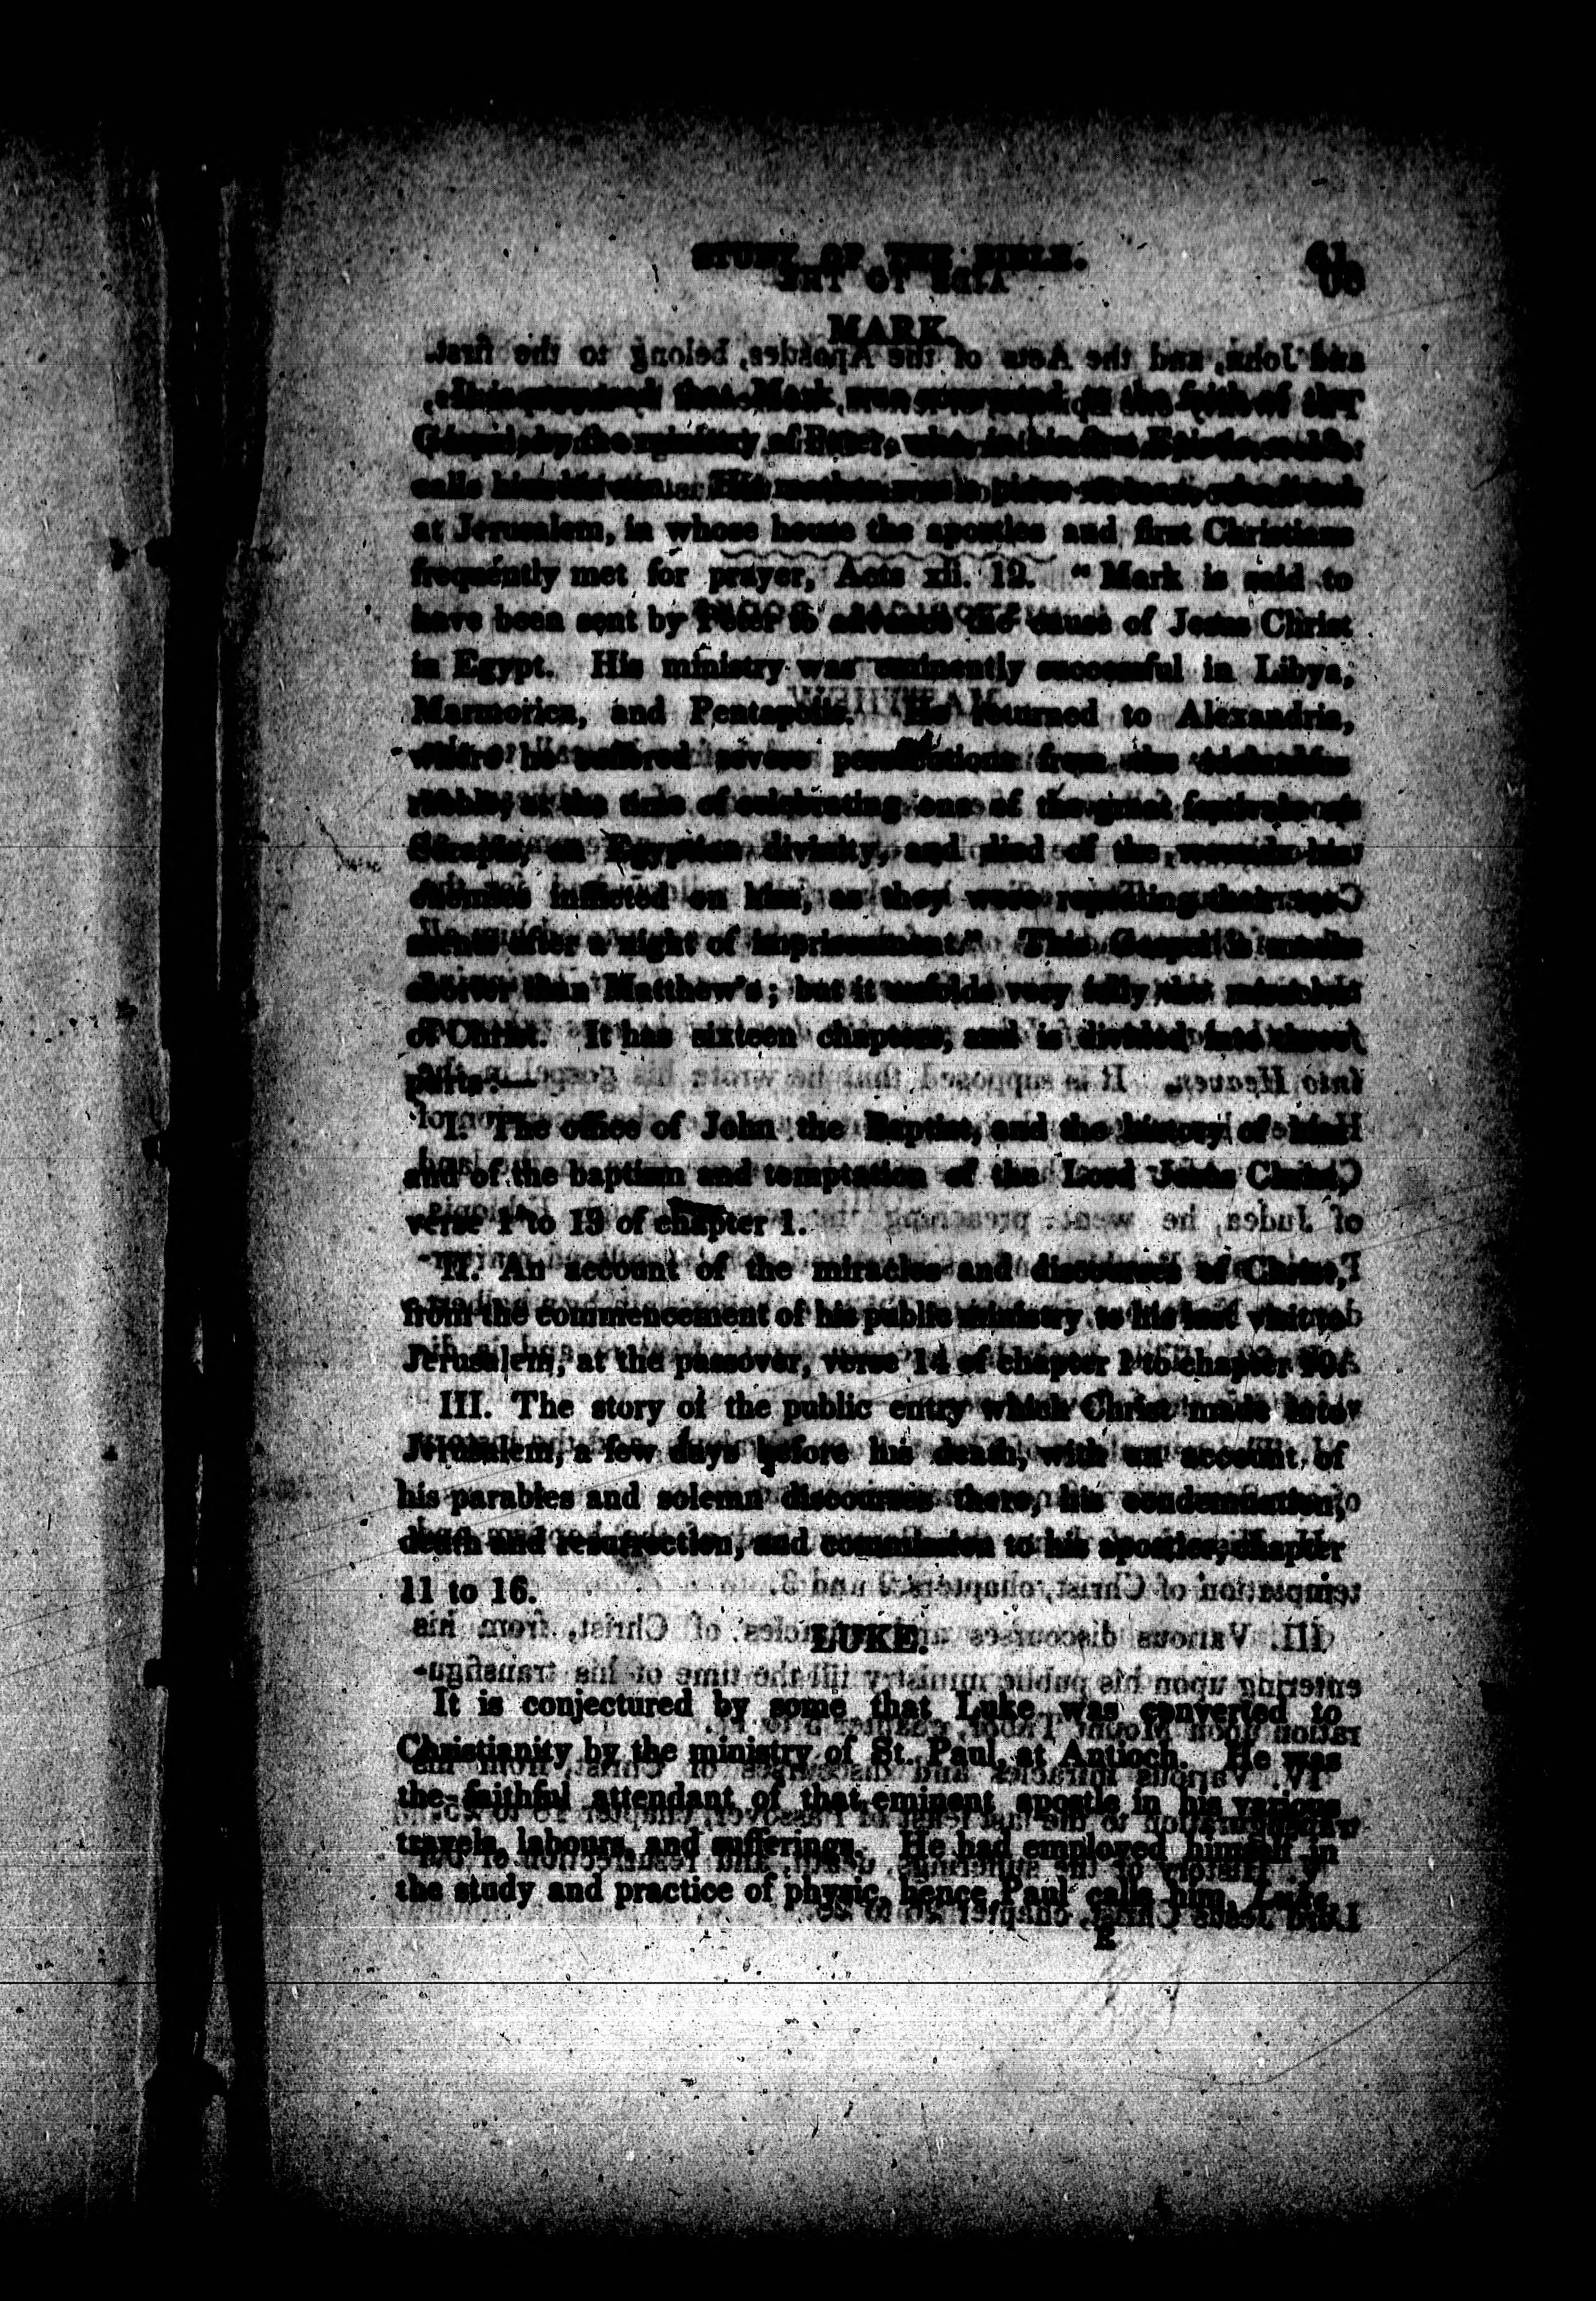 STUDY OF THE BIBLE. 61
MARK.
that Mark was the faith of the
Gospel, by the ministry of Peter, who in his first Epistle
calls him his
at Jerusalem, in whose house the apostles and first Christians
frequently met for prayer, Acts xii. 12. "Mark is said to
have been sent by Peter to advance the cause of Jesus Christ
in Egypt. His ministry was eminently successful in Libya,
Marmorica, and Pentapolis. He returned to Alexandria,
where he suffered severe persecutions from the
at the time of celebrating one of the great
Serapis, an Egyptian divinity, and died of the wounds his
enemies inflicted on him, as they were repeating their
after a night of imprisonment." This Gospel is much
shorter than Matthew's; but it unfolds very fully the
of Christ. It has sixteen chapters, and is divided into three
parts:—
I. The office of John the Baptist, and the history of him
and of the baptism and temptation of the Lord Jesus Christ,
verse 1 to 13 of chapter 1.
II. An account of the miracles and discourses of Christ,
from the commencement of his public ministry to his last visit to
Jerusalem, at the passover, verse 14 of chapter 1 to chapter 10.
III. The story of the public entry which Christ made into
Jerusalem, a few days before his death, with an account of
his parables and solemn discourses there, his condemnation,
death and resurrection, and commission to his apostles, chapter
11 to 16.
LUKE.
It is conjectured by some that Luke was converted to
Christianity by the ministry of St. Paul, at Antioch. He was
the faithful attendant of that eminent apostle in his various
travels, labours, and sufferings. He had employed himself in
the study and practice of physic, hence Paul calls him, Luke,
E